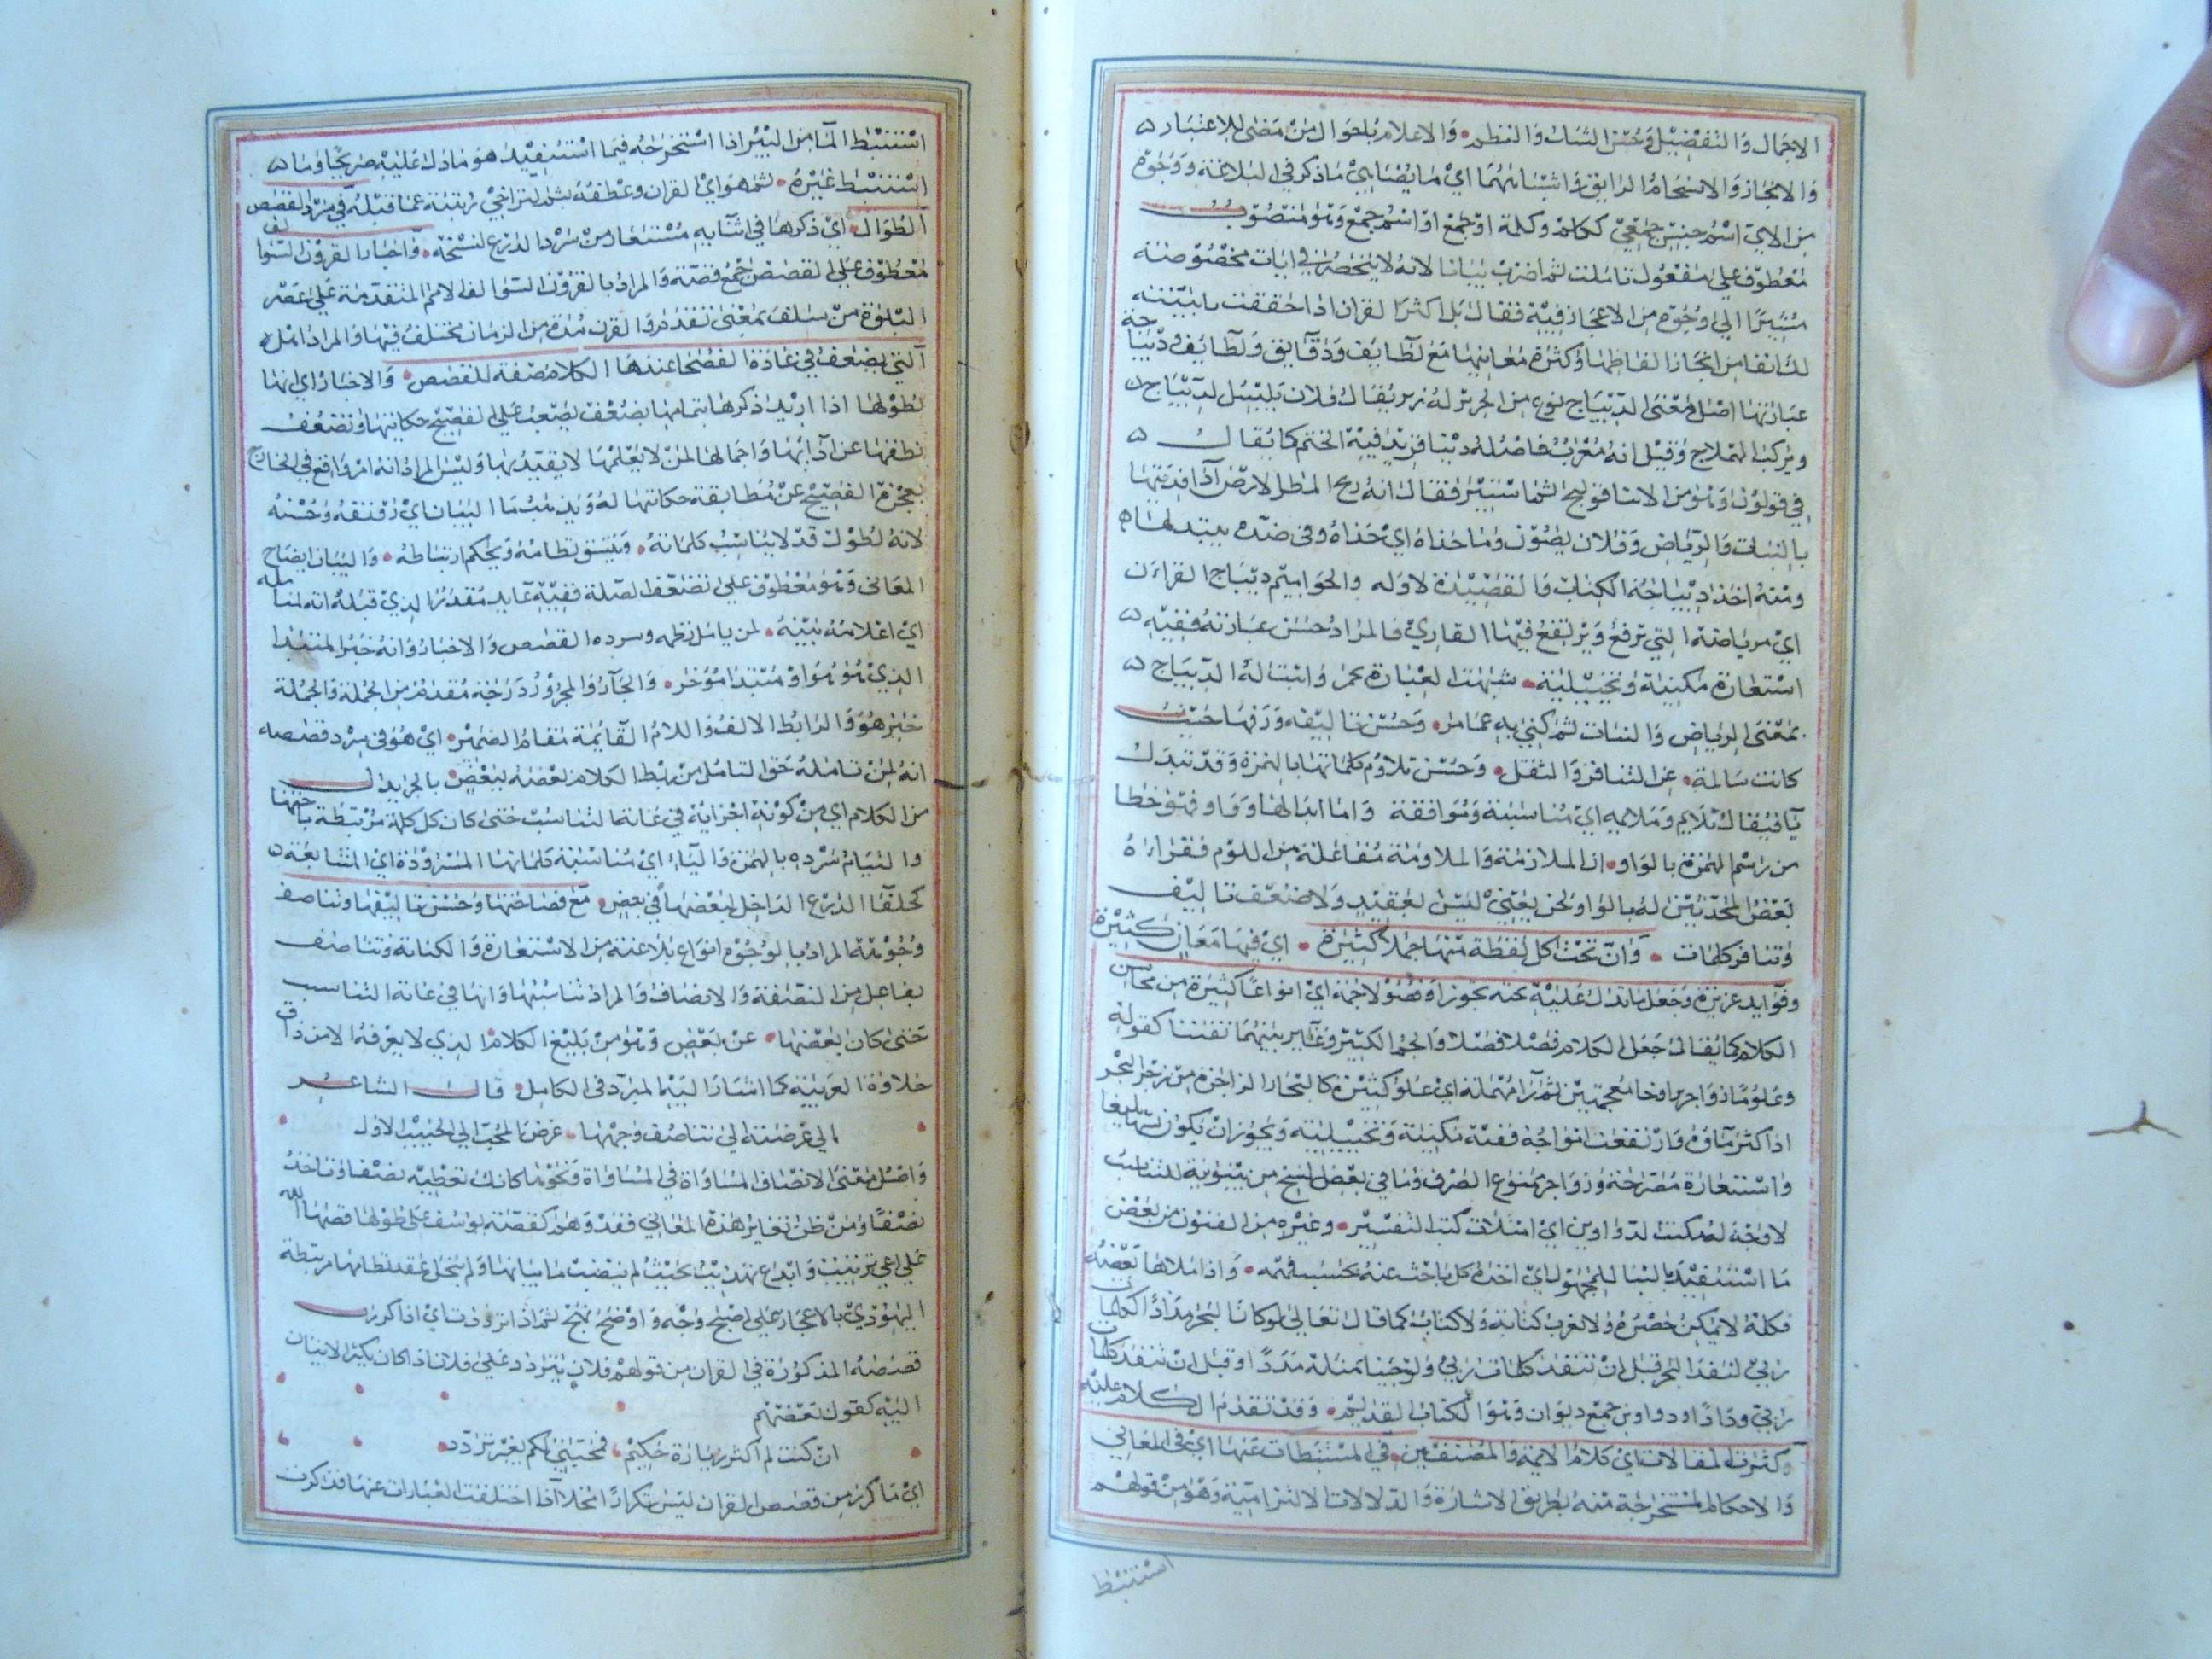 الاجمال والتفصيل وحسن السياق والنظم والاعلام باحوال من مضى للاعتبار
والايجاز والانسجام الرايق واشباههما اي ما يضاهي ما ذكر في البلاغة ووجوه
من الاي اسم جنس جمعي ككلم وكلمة او جمع او اسم جمع وهو منصوب
معطوف على مفعول تاملت ثم اضرب بيانا لانه لا ينحصر في ايات مخصوصة
مشيرا الى وجوه من الاعجاز فيه فقال بل اكثر القران اذا حققت ما بينته
لك انفا من ايجاز الفاظها وكثرة معانيها مع لطايف ودقايق ولطايف وديباجة
عبارتها اصل معنى الديباج نوع من الحرير له زبر يقال فلان يلبس الديباج
ويركب الهملاج وقيل انه معرب فاصله ديبا فزيد فيه الختم كما يقال
بالنبات والرياض وفلان يصون
ومنه اخذ ديباجة الكتاب والقصيدة لاوله والحواميم ديباج القران
اي رياضه التي ترفع ويرتفع فيها القاري فالمراد حسن عبارته ففيه
استعارة مكنية وتخييلية شبهت العبارة واثبت له الديباج
بمعنى الرياض والنبات ثم كني به عما مر وحسن تاليفه ورفها حيث
كانت سالمة عن التنافر والثقل وحسن تلاوم كلماتها بالهمزة وقد تبدل
يا فيقال تلايم وملايمه اي مناسبة وموافقة واما ابدالها واو فهو خطا
من رسم الهمزة بالواو اذ الملازمة والملاومة مفاعلة من اللوم فقراءة
بعض المحدثين له بالواو لحن يعني ليس لتعقيد ولا ضعف تاليف
وتنافر كلمات وان تحت كل لفظة منها جملا كثيرة اي فيها معان كثيرة
وفوايد عزيزة وجعل ما تدل عليه تحته تجوزا وفصولا جمة اي انواعا كثيرة من محاسن
الكلام كما يقال جعل الكلام فصلا فصلا والجم الكثير وغاير بينهما تفننا كقوله
وعلوما زواخر بزا وخا معجمتين ثم را مهملة اي علو كثيرة كالبحار الزاخرة من زخر البحر
اذا كثر ماوه وارتفعت امواجه ففيه مكنية وتخييلية ويجوز ان يكون تشبيها بليغا
واستعارة مصرحة وزواخر ممنوع الصرف وما في بعض النسخ من تنوينه للتناسب
لا وجه له ملئت الدواوين اي امتلات كتب التفسير وغيره من الفنون من بعض
ما استفيد بالبنا للمجهول اي اخذه كل باحث عنه بحسب فهمه واذا ملاها بعضه
فكله لا يمكن حصره ولا لغرب كتابه ولا كتاب كما قال تعالى لو كان البحر مدادا لكلمات
ربي لنفد البحر قبل ان تنفد كلمات ربي ولو جئنا بمثله مددا او قبل ان تنفد كلمات
ربي ودادا ودواوين جمع ديوان وهو الكتاب القديم وقد تقدم الكلام عليه
وكثرت المقالات اي كلام الايمة والمصنفين في المستنبطات عنها اي في المعاني
والاحكام المستخرجة منه بطريق الاشارة والدلالات الالتزامية وهو من قولهم
استنبط
استنبط الما من البير اذا استخرجه فيما استفيد هو ما دل عليه صريحا وما
استنبط غيره ثم هو اي القران وعطفه بثم لتراخي رتبته عما قبله في سرد القصص
الطوال اي ذكرها في اثنايه مستعار من سرد الدرع لنسجه واخبار القرون السوالف
معطوف على القصص جمع قصة والمراد بالقرون السوالف الامم المتقدمة على عصر
النبوة من سلف بمعنى تقدم والقرن مدة من الزمان يختلف فيها والمراد اهله
التي يضعف في عادة الفصحا عندها الكلام صفة للقصص والاخبار اي انها
لطولها اذا اريد ذكرها بتمامها يضعف يصعب على الفصيح حكايتها وتضعف
يعجزه الفصيح عن مطابقة حكايتها له ويذهب ما البيان اي رونقه وحسنه
لانه لطول قد لا يناسب كلماته ويتسق نظامه ويحكم ارتباطه والبيان ايضاح
المعاني وهو معطوف على تضعف الصلة ففيه عايد مقدر الذي قبله انه لمتامله
اي اعلامه بينه لمن يامل نظمه وسرده القصص والاخبار وانه خبر المبتدا
الذي هو هو او مبتدا مؤخر والجار والمجرور درجة مقدم من الجملة والجملة
خبر هو والرابط الالف واللام القايمة مقام الضمير اي هو في سرد قصصه
انه لمن تامله حق التامل من ربط الكلام بعضه ببعض بالجر بدل
من الكلام اي من كونه اجزايه في غاية التناسب حتى كان كل كلمة مرتبطة باختها
والتيام سرده بالهمزة واليا اي مناسبة كلماتها المسرودة اي المتتابعة
كحلقا الدرع الداخل بعضها في بعض مع فصاحتها وحسن تاليفها وتناصف
وجوهه المراد بالوجوه انواع بلاغته من الاستعارة والكناية وتناصف
تفاعل من النصفة والانصاف والمراد تناسبها وانها في غاية التناسب
حتى كان بعضها عن بعض وهو من بليغ الكلام الذي لا يعرفه الا من ذاق
حلاوة العربية كما اشار اليه المبرد في الكامل قال الشاعر
اني غرضت الى تناصف وجهها غرض المحب الى الحبيب الاول
واصل معنى الانصاف المساواة في المساواة فكونها كانك تعطيه نصفا وتاخذ
نصفا ومن ظن تغاير هذه المعاني فقد وهم كقصة يوسف على طولها قصها الله
على اعي ترتيب وابداع تهذيب بحيث لم ينضب ما بيانها ولم ينحل عقد نظامها مرتبطة
اليهودي بالاعجاز على اصبح وجه واوضح نهج ثم اذا ترددت اي اذا كررت
قصصه المذكورة في القران من قولهم فلان يتردد على فلان اذا كان يكثر الاتيان
اليه كقول بعضهم
ان كنت لم اكثر زيارة حيكم فمحبتي لكم بغير تردد
اي ما كرر من قصص القران ليس تكرارا مخلا اذا اختلفت العبارات عنها فذا كررت